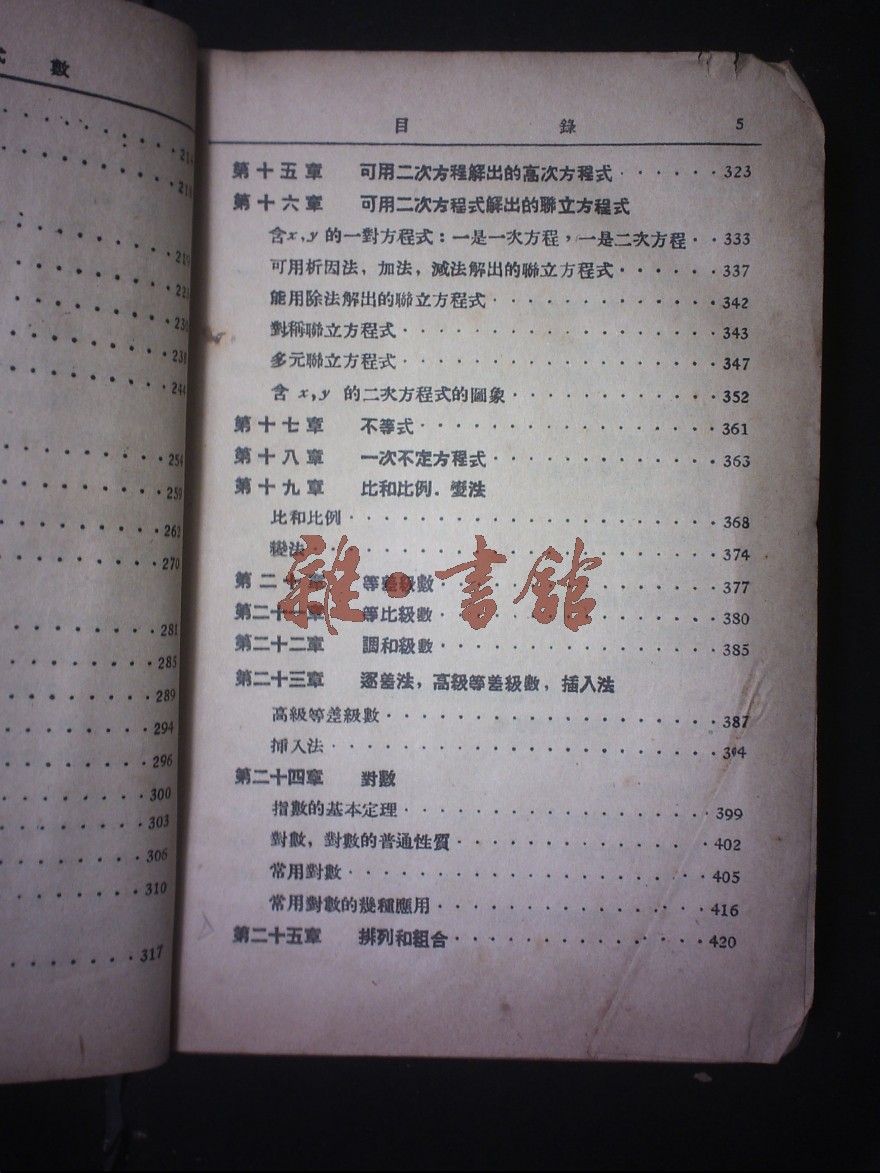 數
214
218
219
223
230
238
244
254
259
263
270
281
285
289
294
296
300
303
306
310
317
目 錄 5
第十五章 可用二次方程解出的高次方程式 · · · · · · 323
第十六章 可用二次方程式解出的聯立方程式
含x,y的一對方程式：一是一次方程，一是二次方程 · · 333
可用析因法，加法，減法解出的聯立方程式 · · · · · · 337
能用除法解出的聯立方程式 · · · · · · · · · · · · · 342
對稱聯立方程式 · · · · · · · · · · · · · · · · · · 343
多元聯立方程式 · · · · · · · · · · · · · · · · · · 347
含 x,y 的二次方程式的圖象 · · · · · · · · · · · · 352
第十七章 不等式 · · · · · · · · · · · · · · · · · 361
第十八章 一次不定方程式 · · · · · · · · · · · · · 363
第十九章 比和比例．變法
比和比例 · · · · · · · · · · · · · · · · · · · · · 368
變法 · · · · · · · · · · · · · · · · · · · · · · · 374
第二十章 等差級數 · · · · · · · · · · · · · · · · 377
第二十一章 等比級數 · · · · · · · · · · · · · · · 380
雜·書館
第二十二章 調和級數 · · · · · · · · · · · · · · · 385
第二十三章 逐差法，高級等差級數，插入法
高級等差級數 · · · · · · · · · · · · · · · · · · · 387
插入法 · · · · · · · · · · · · · · · · · · · · · · 394
第二十四章 對數
指數的基本定理 · · · · · · · · · · · · · · · · · · 399
對數，對數的普通性質 · · · · · · · · · · · · · · · 402
常用對數 · · · · · · · · · · · · · · · · · · · · · 405
常用對數的幾種應用 · · · · · · · · · · · · · · · · 416
第二十五章 排列和組合 · · · · · · · · · · · · · · 420